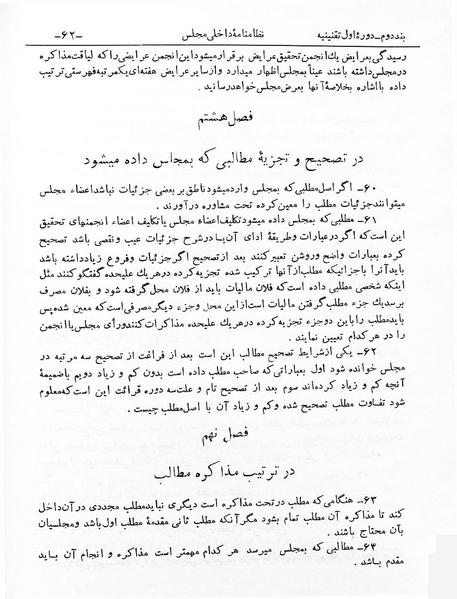 بند دوم ـ دورهٔ اول تقنینیه نظامنامهٔ داخلی مجلس ـ۶۲ـ
رسیدگی بعرایض یك انجمن تحقیق عرایض برقرار میشود این انجمن عرایضی را که لیاقت مذاکره
در مجلس داشته باشند عیناً بمجلس اظهار میدارد و از سایر عرایض هفته‌ای یکمرتبه فهرستی ترتیب
داده با اشاره بخلاصهٔ آنها بعرض مجلس خواهد رسانید .
فصل هشتم
در تصحیح و تجزیهٔ مطالبی که بمجلس داده میشود
۶۰ـ اگر اصل مطلبی که بمجلس وارد میشود ناطق بر بعضی جزئیات نباشد اعضاء مجلس
میتوانند جزئیات مطلب را معین کرده تحت مشاوره در آورند .
۶۱ـ مطلبی که بمجلس داده میشود تکلیف اعضاء مجلس یا تکلیف اعضاء انجمنهای تحقیق
این است که اگر در عبارات و طریقهٔ ادای آن یا در شرح جزئیات عیب و نقصی باشد تصحیح
کرده بعبارات واضح و روشن تعبیر کنند بعد از تصحیح اگر جزئیات و فروع زیاد داشته باشد
باید آنرا باجزائیکه مطلب از آنها ترکیب شده تجزیه کرده در هر یك علیحده گفتگو کنند مثل
اینکه شخصی مطلبی داده است که فلان مالیات باید از فلان محل گرفته شود و بفلان مصرف
برسد یك جزء مطلب گرفتن مالیات است از این محل و جزء دیگر مصرفی است که معین شده پس
باید مطلب را باین دو جزء تجزیه کرده در هر یك علیحده مذاکرات کنند و رأی مجلس یا انجمن
را در هر کدام تعیین نمایند .
۶۲ـ یکی از شرایط تصحیح مطالب این است بعد از فراغت از تصحیح سه مرتبه در
مجلس خوانده شود اول بعباراتی که صاحب مطلب داده است بدون کم و زیاد دویم باضمیمهٔ
آنچه کم و زیاد کرده‌اند سوم بعد از تصحیح تام و علت سه دوره قرائت این است که معلوم
شود تفاوت مطلب تصحیح شده و کم و زیاد آن با اصل مطلب چیست .
فصل نهم
در ترتیب مذاکره مطالب
۶۳ـ هنگامی که مطلب در تحت مذاکره است دیگری نباید مطلب مجددی در آن داخل
کند تا مذاکره آن مطلب تمام بشود مگر آنکه مطلب ثانی مقدمهٔ مطلب اول باشد و مجلسیان
بآن محتاج باشند .
۶۴ـ مطالبی که بمجلس میرسد هر کدام مهمتر است مذاکره و انجام آن باید
مقدم باشد .